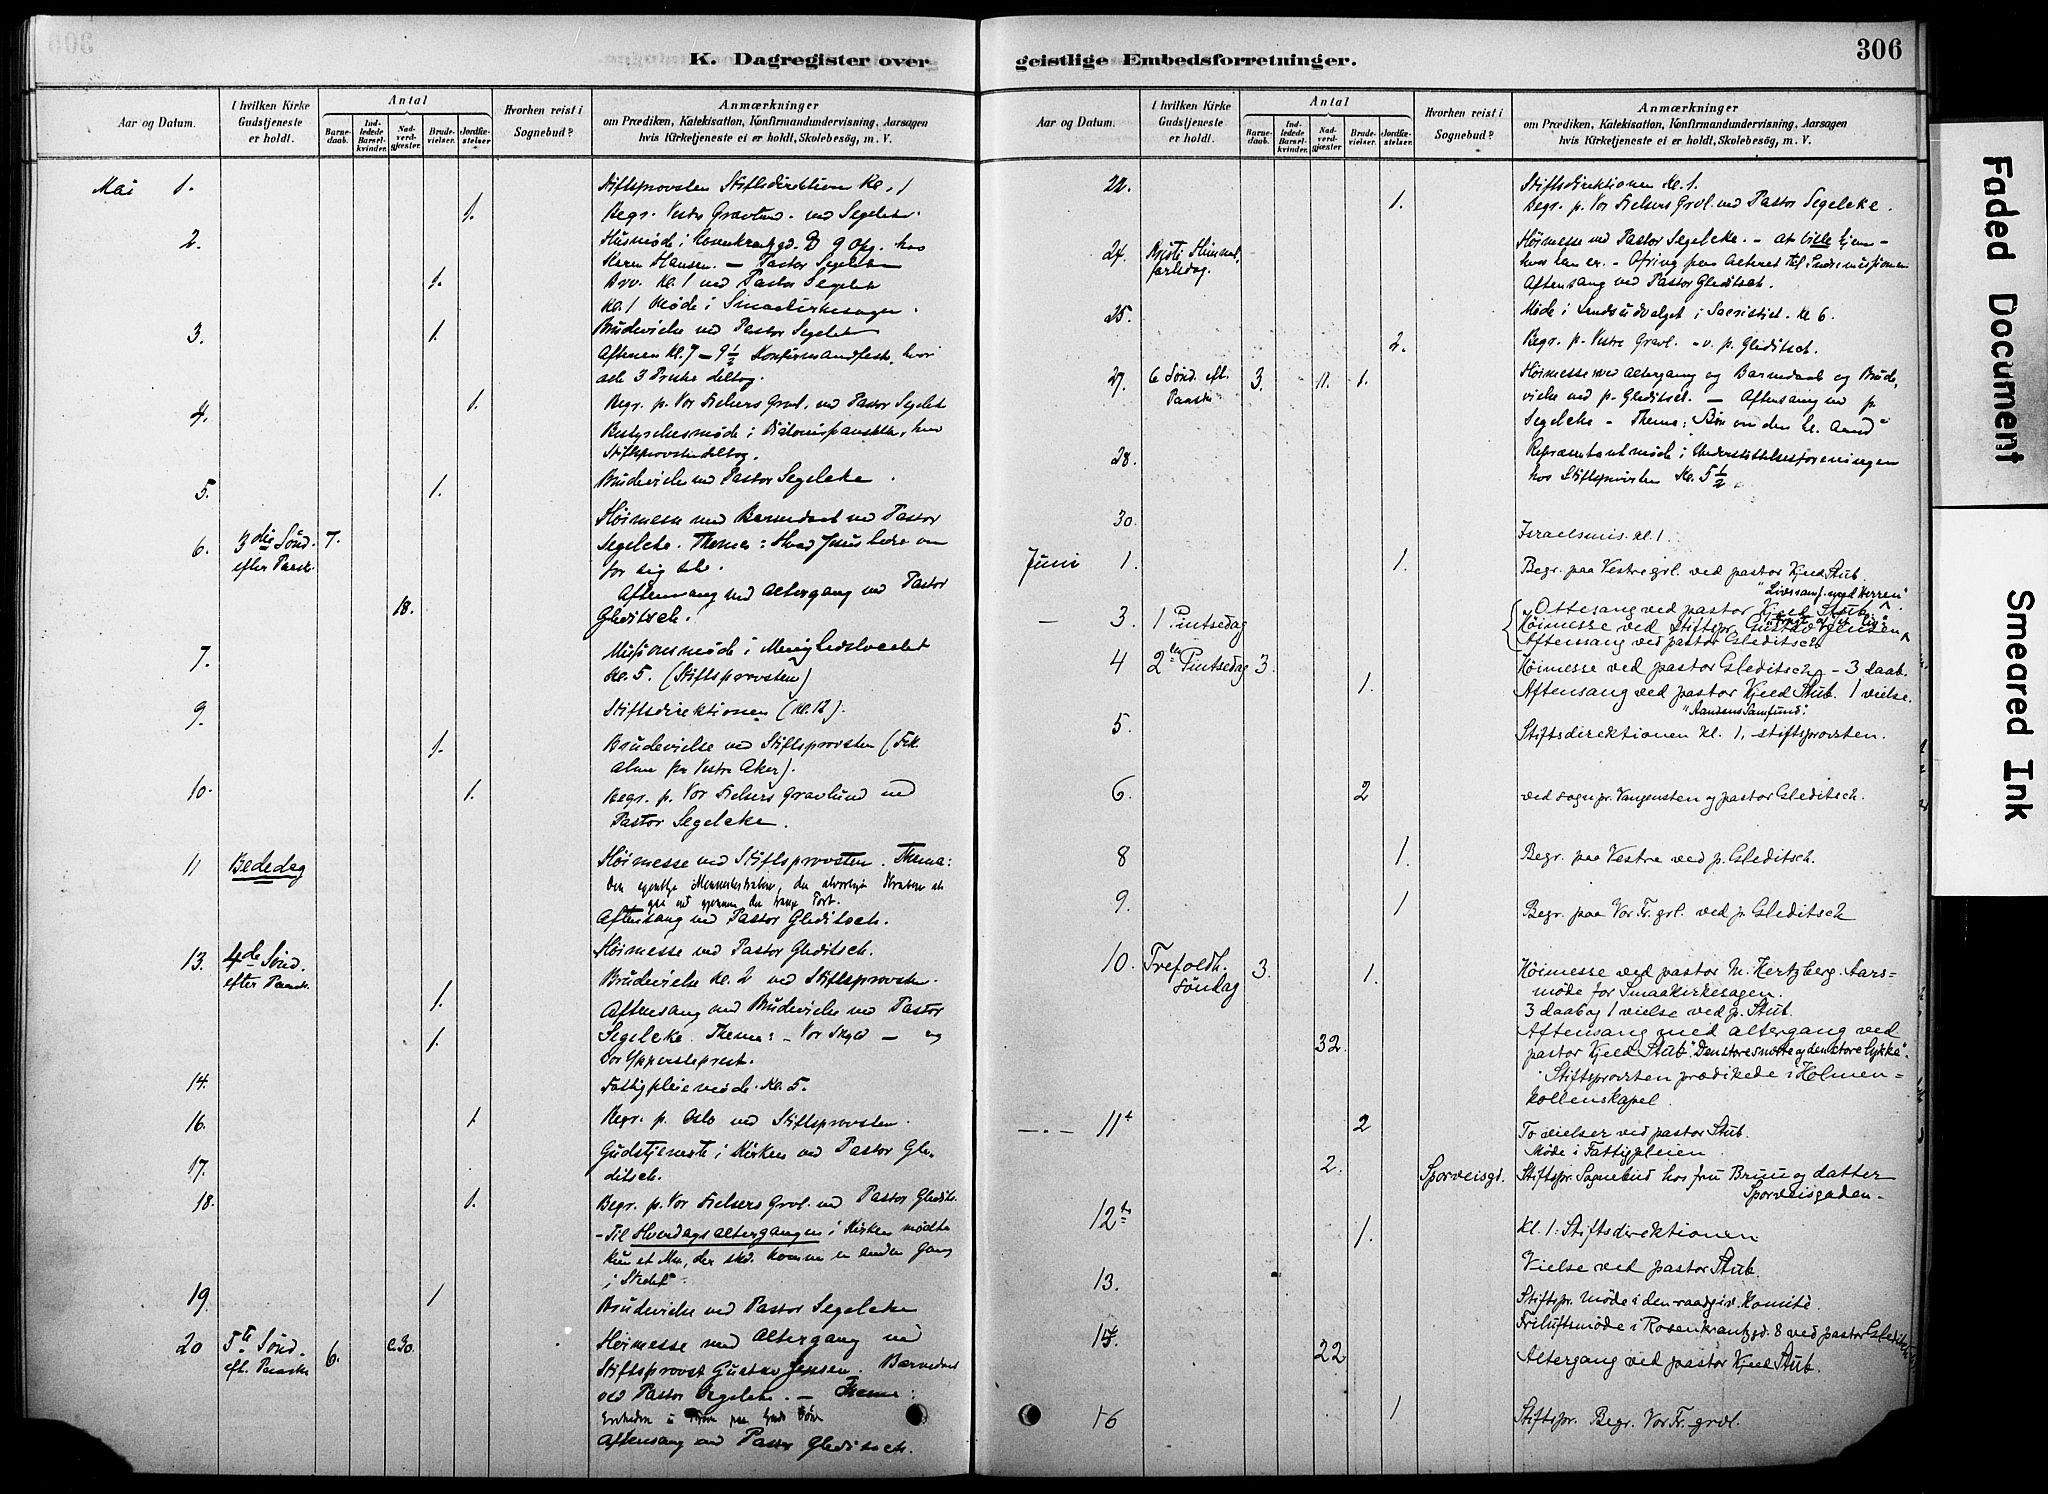 306
K. Dagregister over
Aar og Datum.
I hvilken Kirke Gudstjeneste er holdt.
Antal
Barnedaab.
Indledede Barselkvinder.
Nadverdgjæster.
Brudevielser.
Jordfæstelser
Hvorhen reist i Sognebud?
Anmærkninger
om Prædiken, Katekisation, Konfirmandundervisning, Aarsagen
hvis Kirketjeneste ei er holdt, Skolebesög, m. V.
Mai 1. Stiftsprovsten Stiftsdirektionen Kl. 1
1. Begr. Vestre Gravlund. ved Segelcke.
2. Husmøde i Rosenkrantzgd. 9 Opg. hos
Karen Hansen. – Pastor Segelcke
1. Brv. Kl. 1 ved Pastor Segelcke
Kl. 1 Møde i Smaakirkesagen.
3. 1. Brudevielse ved Pastor Segelcke
Aftenen Kl. 7 – 9 1/2 Konfirmandfest, hvori
alle 3 Prester deltog.
4. 1. Begr. p. Vor Frelsers Gravl. ved Pastor Segelcke
Bestyrelsesmøde i hvor
Stiftsprovsten deltog.
5. 1. Brudevielse ved Pastor Segelcke.
6. 3die Sønd. efter Paask. 7. Høimesse med Barnedaab ved Pastor
Segelcke. Thema: Hvad Jesus beder om
for sig selv.
18. Aftensang med Altergang ved Pastor
Gleditsch.
7. Missionsmøde i Menighedslokalet
Kl. 5. (Stiftsprovsten)
9. Stiftsdirektionen (Kl. 12).
1. Brudevielse ved Stiftsprovsten (
Vestre Aker).
10. 1. Begr. p. Vor Frelsers Gravlund ved
Pastor Segelcke.
11 Bededag Høimesse ved Stiftsprovsten. Thema:
Den egentlige den alvorlige at
gaa ind gjennem den trange Port.
Aftensang ved Pastor Gleditsch.
13. 4de Sønd. efter Paask. Høimesse ved Pastor Gleditsch.
Brudevielse Kl. 2 ved Stiftsprovsten.
1. Aftensang med Brudevielse ved Pastor
1. Segelcke. Thema: – Vor Skyld – og
vor Ypperstepræst.
14. Fattigpleiemøde. Kl. 5.
16. 1 Begr. p. Oslo ved Stiftsprovsten.
17. Gudstjeneste i Kirken ved Pastor Gleditsch.
18. 1. Begr. p. Vor Frelsers Gravl. ved Pastor Gledits.
– Til Hverdagsaltergangen i Kirken mødte
kun et Mn, der skl. komme en anden Gang
i Stedet
19. 1 Brudevielse ved Pastor Segelcke
20 5te Sønd. eft. Paaske 6. c. 30. Høimesse med Altergang ved
Stiftsprovst Gustav Jensen. Barnedaab
ved Pastor Segelcke. – Thema:
Aftensang ved Pastor Gleditsch.
geistlige Embedsforretninger.
306
Aar og Datum.
I hvilken Kirke Gudstjeneste er holdt.
Antal
Barnedaab.
Indledede Barselkvinder.
Nadverdgjæster.
Brudevielser.
Jordfæstelser.
Hvorhen reist i Sognebud?
Anmærkninger
om Prædiken, Katekisation, Konfirmandundervisning, Aarsagen
hvis Kirketjeneste ei er holdt, Skolebesög, m. V.
22. Stiftsdirektionen Kl. 1.
1. Begr. p. Vor Frelsers Grvl. ved Pastor Segelcke.
24. Kristi Himmelfartsdag. Høimesse ved Pastor Segelcke. – at ville hjem –
hvor han er. – Ofring paa Alteret til Indremissionen
Aftensang ved Pastor Gleditsch.
25. Møde i Tilsynsudvalget i Sacristiet. Kl 6.
2. Begr. p. Vestre Gravl. v. p. Gleditsch.
27. 6 Sønd. eft. Paaske 3. 11. 1. Høimesse med Altergang og Barnedaab og Brudevielse
ved p. Gleditsch. – Aftensang ved p
Segelcke – Thema: Bøn om den hl. Aand
28. Repræsentantmøde i Understøttelsesforeningen
hos Stiftsprovsten Kl. 5 1/2.
30. Israelsmis. kl. 1.
Juni 1. 1. Begr. paa Vestre grl. ved pastor Kjeld Stub.
"Livssamf. med Herren"
— 3. 1 Pintsedag Ottesang ved pastor Kjeld Stub.
Høimesse ved Stiftspr. Gustav Jensen
Aftensang ved pastor Gleditsch
4 2den Pintsedag 3. Høimesse ved pastor Gleditsch – 3 daab.
1. Aftensang ved pastor Kjeld Stub. 1 vielse.
"Aandens Samfund".
5. Stiftsdirektionen kl. 1. stiftsprovsten.
6. 2 ved sogn pr. Vangensten og pastor Gleditsch.
8 1. Begr. paa Vestre ved p. Gleditsch.
9. 1 Begr. paa Vor Fr. grl. ved p. Gleditsch
10. Trefoldh. søndag 3. 1. Høimesse ved pastor N. Hertzberg. Aarsmøde
for Smaakirkesagen.
3 daab og 1 vielse ved p. Stub.
Aftensang med altergang ved
32. pastor Kjeld Stub. "Den store smerte og den store lykke".
Stiftsprovsten prædikede i Holmenkollenskapel.
11te 2 To vielser ved pastor Stub.
Møde i Fattigpleien
2. Sporveisgd. Stiftspr. Sognebud hos fru Bruu og datter
Sporveisgaden.
12te Kl. 1: Stiftsdirektionen
1. Vielse ved pastor Stub.
13. Stiftspr. møde i den raadgiv. Komité.
Friluftsmøde i Rosenkrantzgd. 8 ved pastor Gleditsch
15. 22 Altergang ved pastor Kjeld Stub.
16 1 Stiftspr. Begr. Vor Fr. gravl.
Faded Document
Smeared Ink